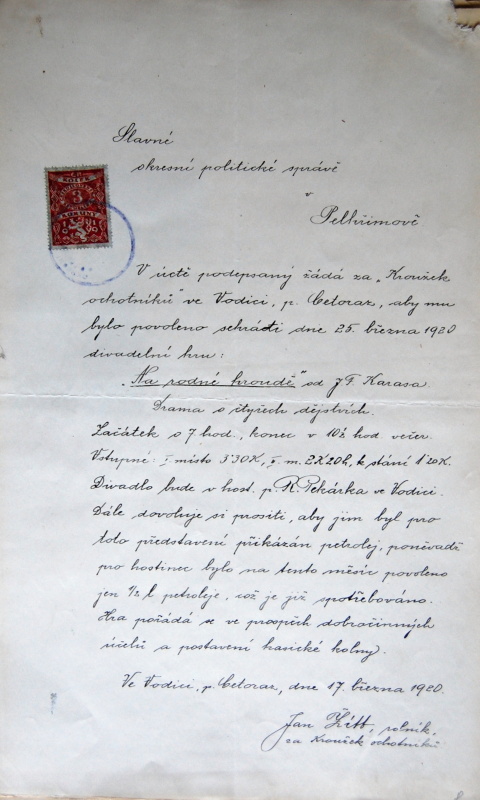 Slavné
okresní politické správě
v
Pelhřimově
3
KORUNY
V úctě podepsaný žádá za „Kroužek
ochotníků" ve Vodici, p. Cetoraz, aby mu
bylo povoleno sehráti dne 25. března 1920
divadelní hru:
„Na rodné hroudě" od J. F. Karasa.
Drama o čtyřech dějstvích.
Začátek o 7 hod., konec v 10½ hod. večer.
Vstupné: I místo 3·30K, II. m. 2K20h, k stání 1·20K.
Divadlo bude v host. p. R. Pekárka ve Vodici.
Dále dovoluje si prositi, aby jim byl pro
toto představení přikázán petrolej, poněvadž
pro hostinec bylo na tento měsíc povoleno
jen ½ l petroleje, což je již spotřebováno.
Hra pořádá se ve prospěch dobročinných
účelů a postavení hasické kolny).
Ve Vodici, p. Cetoraz, dne 17. března 1920.
Jan Žitt, rolník,
za Kroužek ochotníků